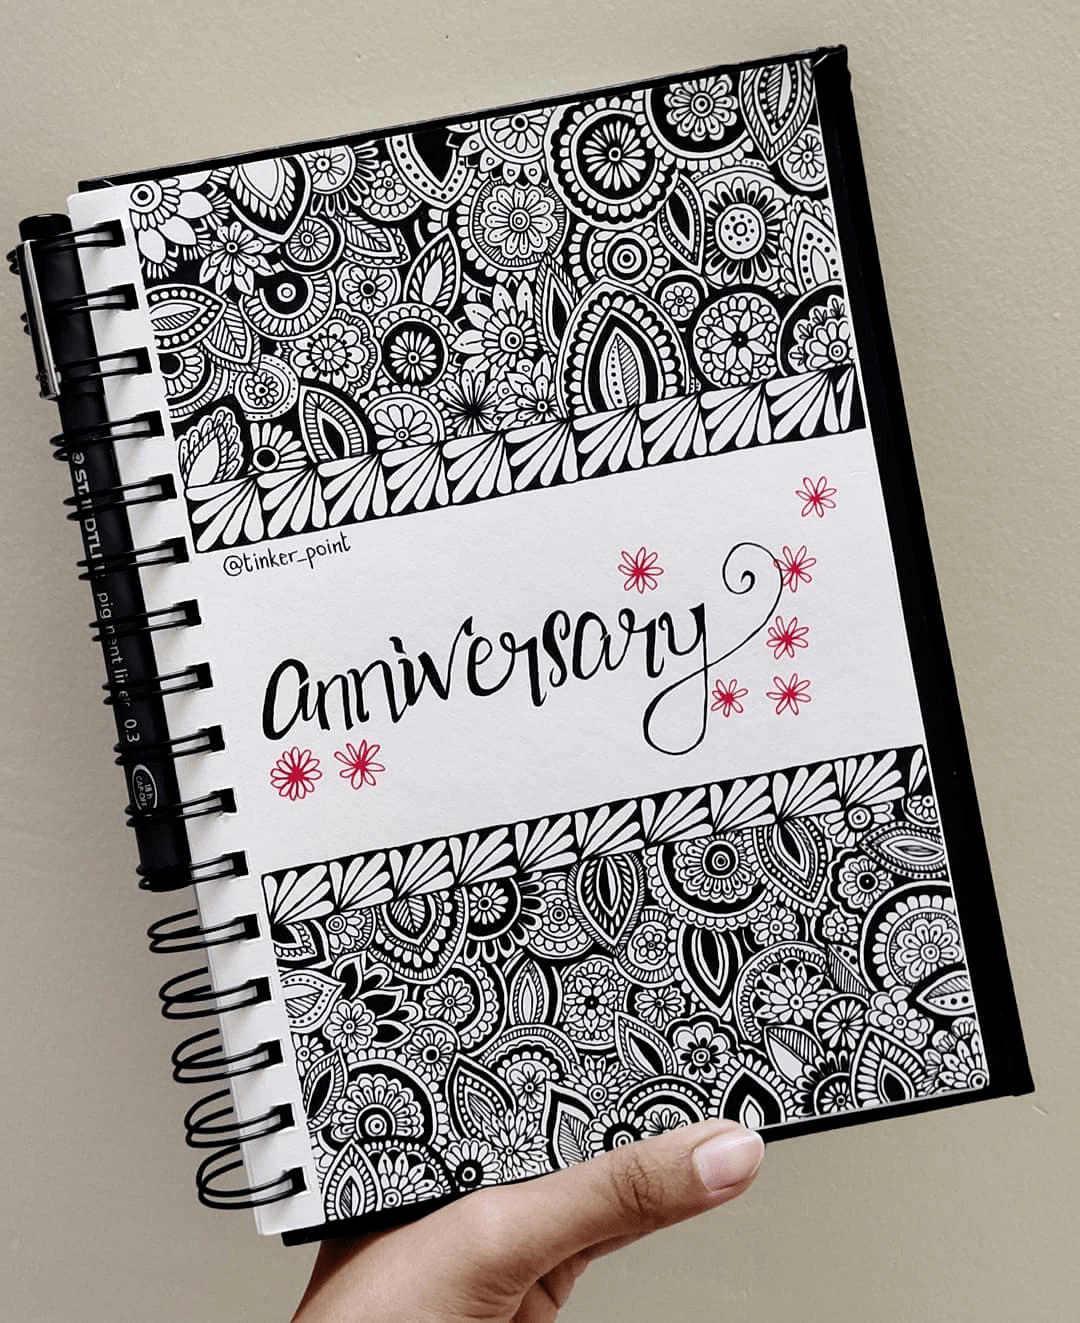 @tinker_point
anniversary
STAEDTLER pigment liner 0.3
18 h
CAP-OFF